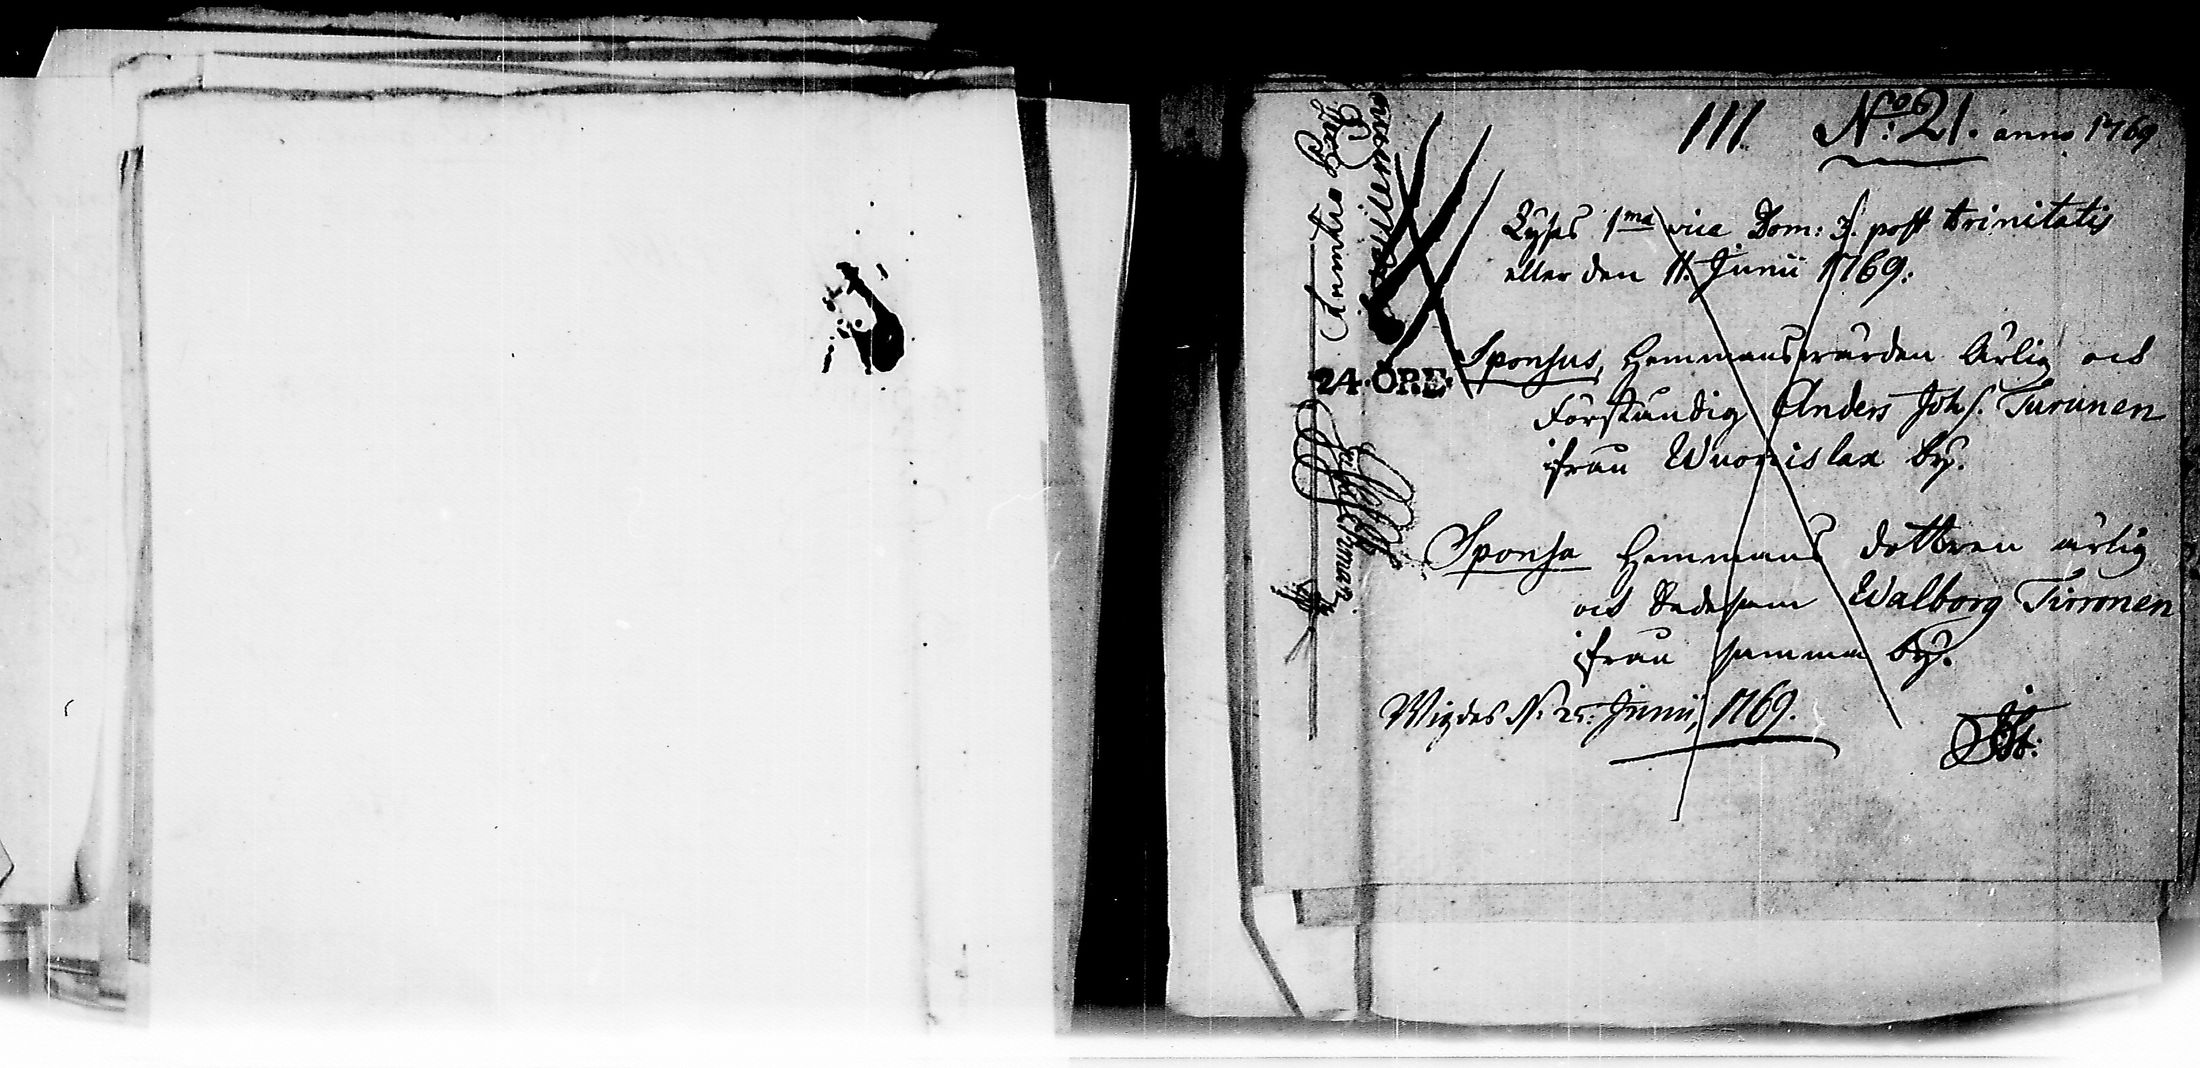 111 No: 21. anno 1769
Lyses 1ma vice Dom: 3. post trinitatis
eller den 11. Junii 1769.
24. ÖRE.
Sponsus, Hemmanswärden Ärlig och
Förståndig Anders Joh/s. Turunen
ifrån Wuonislax by.
Sponsa Hemmans dottren ärlig
och Dedesam Walborg Tirronen
ifrån samma by.
Wigdes d. 25. Junii, 1769.